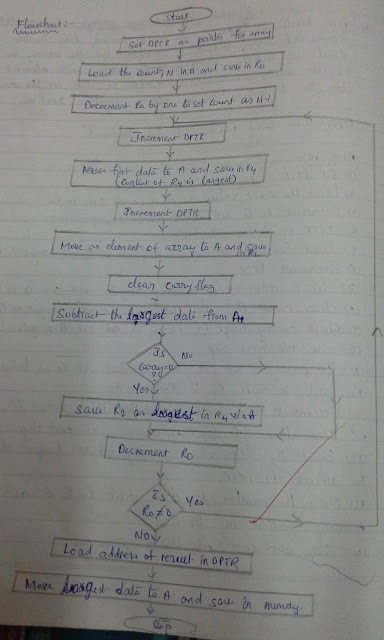 Flowchart:
Start
Set DPTR as pointer for array
Load the count, N in A and save in R0
Decrement R0 by one to set count as N-1
Increment DPTR
Move first data to A and save in R4
(content of R4 is largest)
Increment DPTR
Move an element of array to A and save
clear carry flag
Subtract the largest data from A
Is
No
Carry=0
?
Yes
Save R2 as largest in R4 via A
Decrement R0
Is
Yes
R0≠0
NO
Load address of result in DPTR
Move largest data to A and save in memory.
Stop